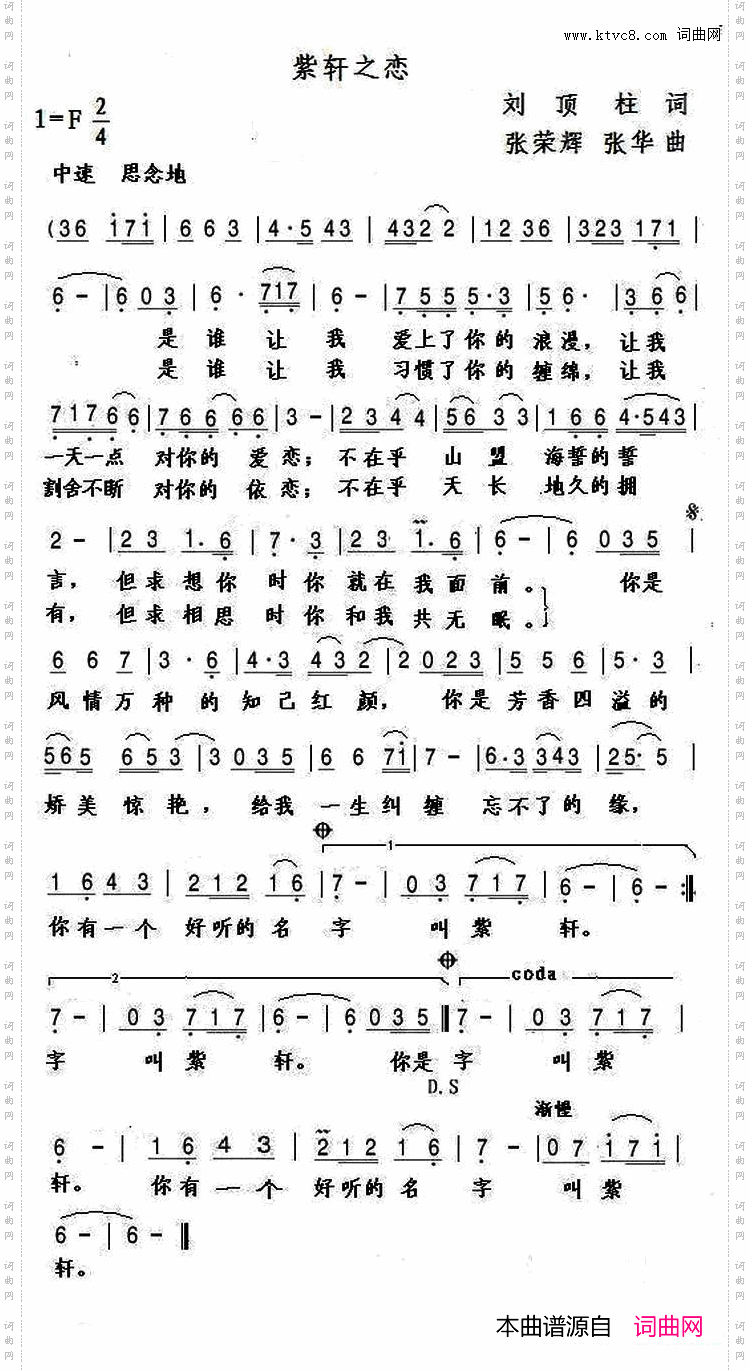 www.ktvc8.com 词曲网
紫轩之恋
1=F 2/4
刘顶柱词
张荣辉 张华曲
中速 思念地
(36 171 | 663 | 4·5 43 | 4322 | 12 36 | 323 171 |
6 - | 6 03 | 6· 717 | 6 - | 755 5·3 | 56· | 366 |
是谁 让 我 爱上了你的 浪漫, 让我
是谁 让 我 习惯了你的 缠绵, 让我
717 66 | 766 66 | 3 - | 23 44 | 56 33 | 166 4·543 |
一天一点 对你的 爱恋; 不在乎 山 盟 海誓的誓
割舍不断 对你的 依恋; 不在乎 天长 地久的拥
2 - | 23 1.6 | 7·3 | 23 1.6 | 6 - | 6 035 |
言, 但求想你 时你 就在我面前。 你是
有, 但求相思 时你 和我共无眠。
667 | 3·6 | 4·3 432 | 2 023 | 556 | 635 |
风情万种的知己红颜, 你是芳香四溢的
565 653 | 3 035 | 66 71 | 7 - | 6·3 343 | 25·5 |
娇美 惊艳, 给我 一生纠缠 忘不了的缘,
1
16 43 | 212 16 | 7 - | 03 717 | 6 - | 6 - :||
你有一个 好听的名 字 叫紫 轩。
2 coda
7 - | 03 717 | 6 - | 6 035 || 7 - | 03 717 |
字 叫紫 轩。 你是字 叫紫
D.S
渐慢
6 - | 16 43 | 212 16 | 7 - | 07 171 |
轩。 你有一个 好听的名 字 叫紫
6 - | 6 - ||
轩。
本曲谱源自 词曲网
词曲网